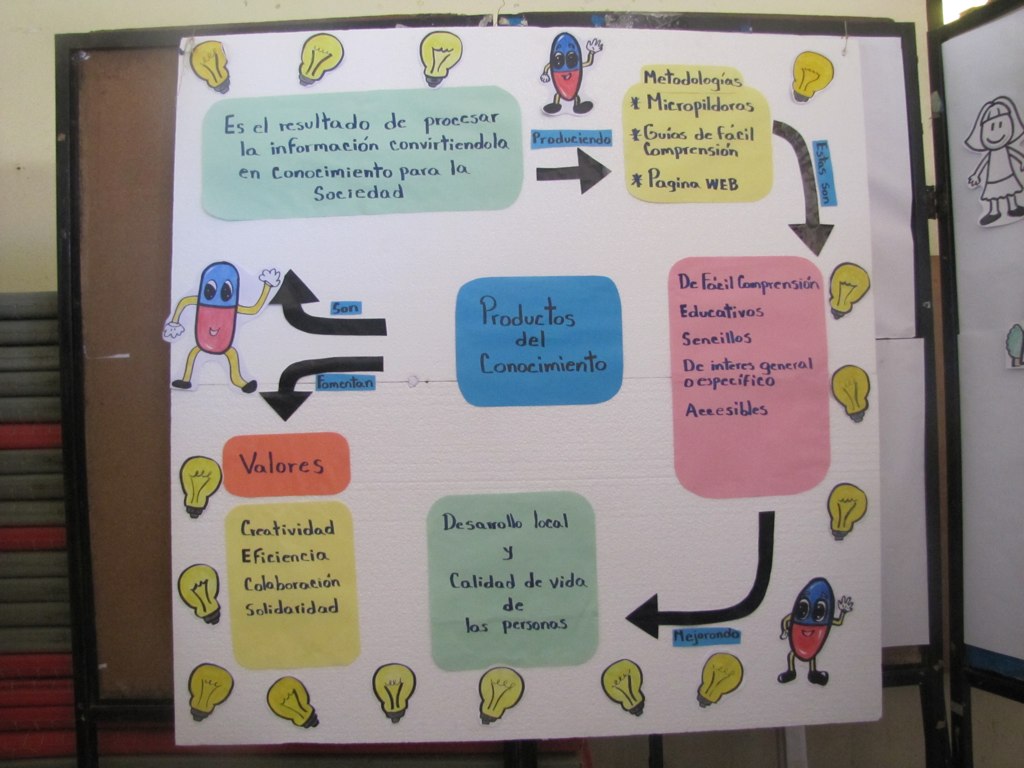 Es el resultado de procesar
la información convirtiendola
en Conocimiento para la
Sociedad
Produciendo
Metodologías
* Micropildoras
* Guías de Fácil
Comprensión
* Pagina WEB
Estas son
De Fácil Comprensión
Educativos
Sencillos
De interes general
o específico
Accesibles
Mejorando
Desarrollo local
y
Calidad de vida
de
las personas
Productos
del
Conocimiento
Son
Fomentan
Valores
Creatividad
Eficiencia
Colaboración
Solidaridad